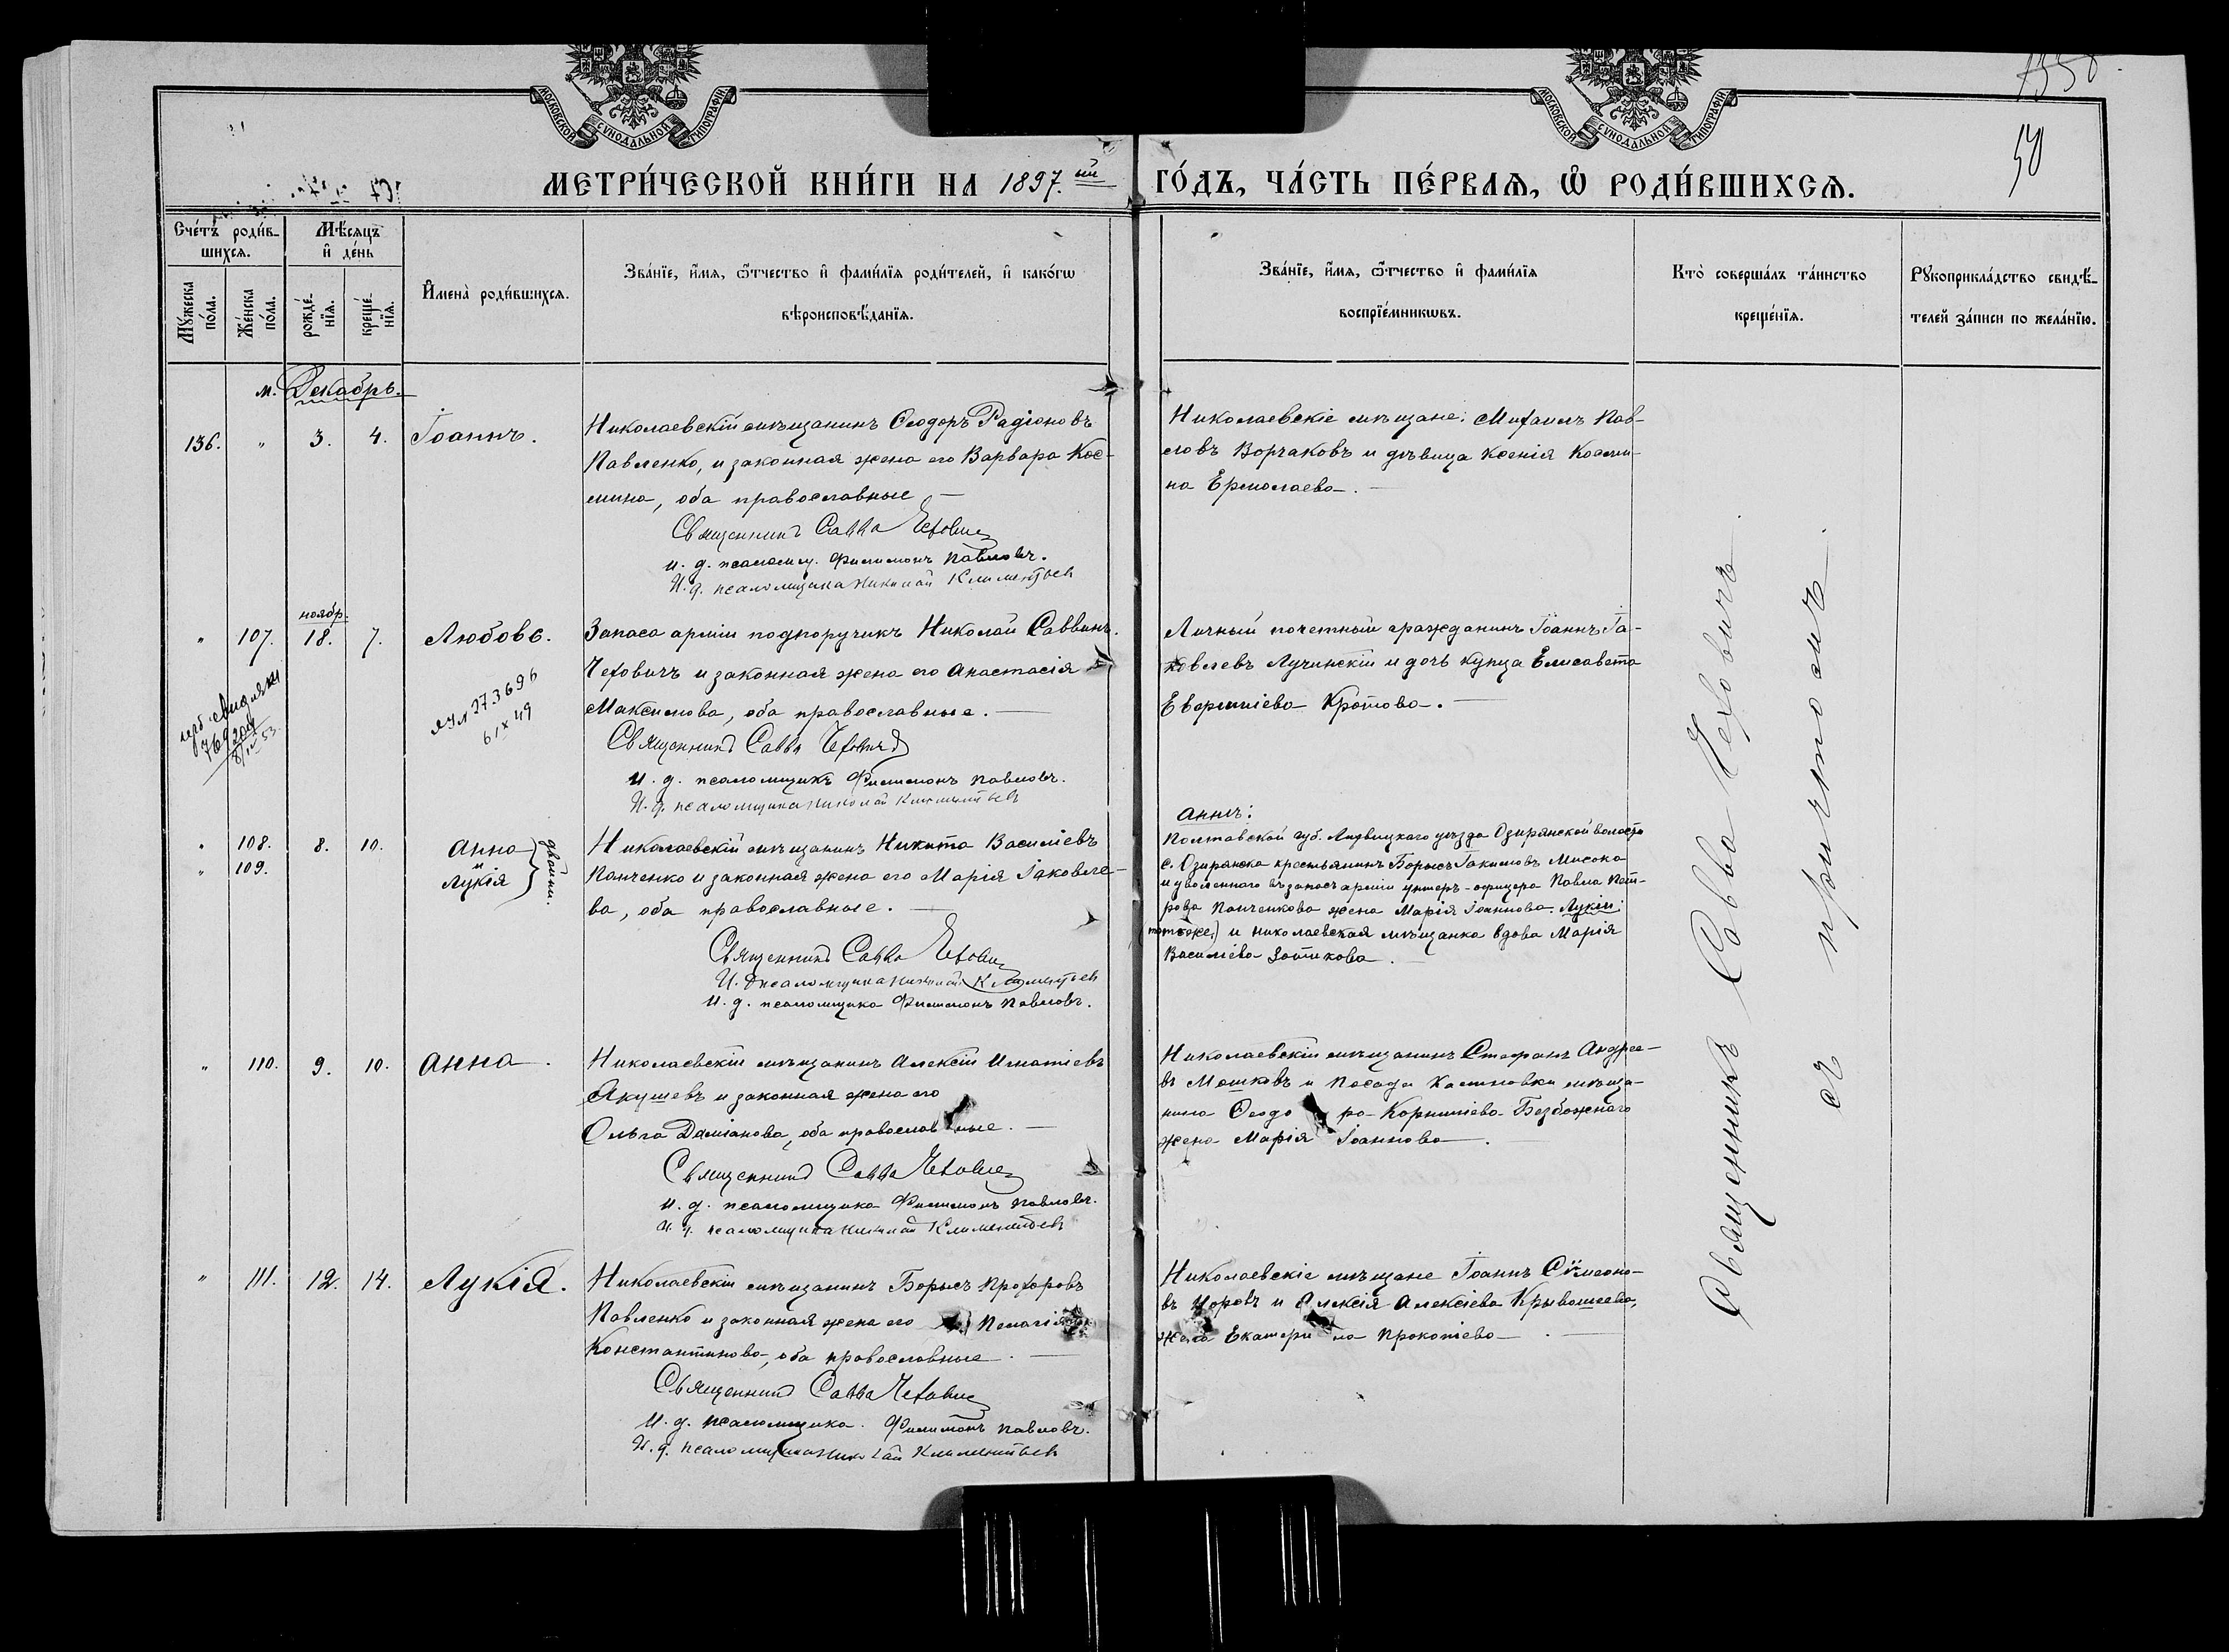 МОСКОВСКОЙ СѴНОДАЛЬНОЙ ТИПОГРАФІИ
МОСКОВСКОЙ СѴНОДАЛЬНОЙ ТИПОГРАФІИ
50
МЕТРИ́ЧЕСКОЙ КНИ́ГИ НА 1897.ый ГО́ДЪ, ЧА́СТЬ ПЕ́РВАѦ, Ѡ҆ РОДИ́ВШИХСѦ.
Сче́тъ роди́в-
шихсѧ.
Мѣ́сѧцъ
и҆ де́нь
Мꙋ́жеска по́ла.
Же́нска по́ла.
рожде́-
нїѧ.
креще́-
нїѧ.
И҆мена̀ роди́вшихсѧ.
Зва́нїе, и҆́мѧ, ѻ҆́тчество и҆ фами́лїѧ роди́телей, и҆ како́гѡ
вѣроисповѣ́данїѧ.
Зва́нїе, и҆́мѧ, ѻ҆́тчество и҆ фами́лїѧ
воспрїе́мникѡвъ.
Кто̀ соверша́лъ та́инство
креще́нїѧ.
Рꙋкоприкла́дство свидѣ́-
телей за́писи по жела́нїю.
м. Декабрь.
136. " 3. 4. Іоаннъ.
Николаевскій мѣщанинъ Ѳеодоръ Радіоновъ
Павленко, и законная жена его Варвара Кос-
мина, оба православные
Священникъ Савва Чехович
и. д. псаломщ. Филимонъ Павловъ.
И. д. псаломщика Николай Климентьев
Николаевскіе мѣщане: Михаилъ Пав-
ловъ Ворчаковъ и дѣвица Ксенія Косми-
на Ермолаева.
" 107. ноябр. 18. 7. Любовь.
769204
8/IV 53.
ЯЧЛ 273696
6 IX 49
Запаса арміи подпоручикъ Николай Саввинъ
Чеховичъ и законная жена его Анастасія
Максимова, оба православные.
Священникъ Савва Чехович
И. д. псаломщикъ Филимонъ Павловъ.
И. д. псаломщика Николай Климентьев
Личный почетный гражданинъ Іоаннъ Іа-
ковлевъ Лучинскій и дочь купца Елисавета
Евфиміева Кротова.
" 108. 8. 10. Анна
" 109. и
Лукія
двойни.
Николаевскій мѣщанинъ Никита Василіевъ
Панченко и законная жена его Марія Іаковле-
ва, оба православные.
Священникъ Савва Чехович
И. д. псаломщика Николай Климентьев
И. д. псаломщика Филимонъ Павловъ.
Анны:
Полтавской губ. Лохвицкаго уѣзда Озирянской волости
с. Озирянска крестьянинъ Борисъ Іакимовъ Мисока
и уволеннаго въ запасъ арміи унтеръ-офицера Павла Пет-
рова Панченкова жена Марія Іоаннова. Лукіи:
(тотъ же) и Николаевская мѣщанка вдова Марія
Василіева Зотикова.
" 110. 9. 10. Анна.
Николаевскій мѣщанинъ Алексій Игнатіевъ
Якушевъ и законная жена его
Ольга Даміанова, оба православные.
Священникъ Савва Чехович
И. д. псаломщика Филимонъ Павловъ.
И. д. псаломщика Николай Климентьев
Николаевскій мѣщанинъ Стефанъ Андрее-
въ Мошковъ и посада Калиновки мѣща-
нина Ѳеодора Корниліева Безбожнаго
жена Марія Іоаннова.
" 111. 12. 14. Лукія.
Николаевскій мѣщанинъ Борисъ Прохоровъ
Павленко и законная жена его Пелагія
Константинова, оба православные.
Священникъ Савва Чехович
И. д. псаломщика Филимонъ Павловъ.
И. д. псаломщика Николай Климентьев
Николаевскіе мѣщане Іоаннъ Сѵмеоно-
въ и Алексія Алексіева Крывошеева,
жена Екатерина Прокопіева.
Священникъ Савва Чеховичъ
съ причтомъ.